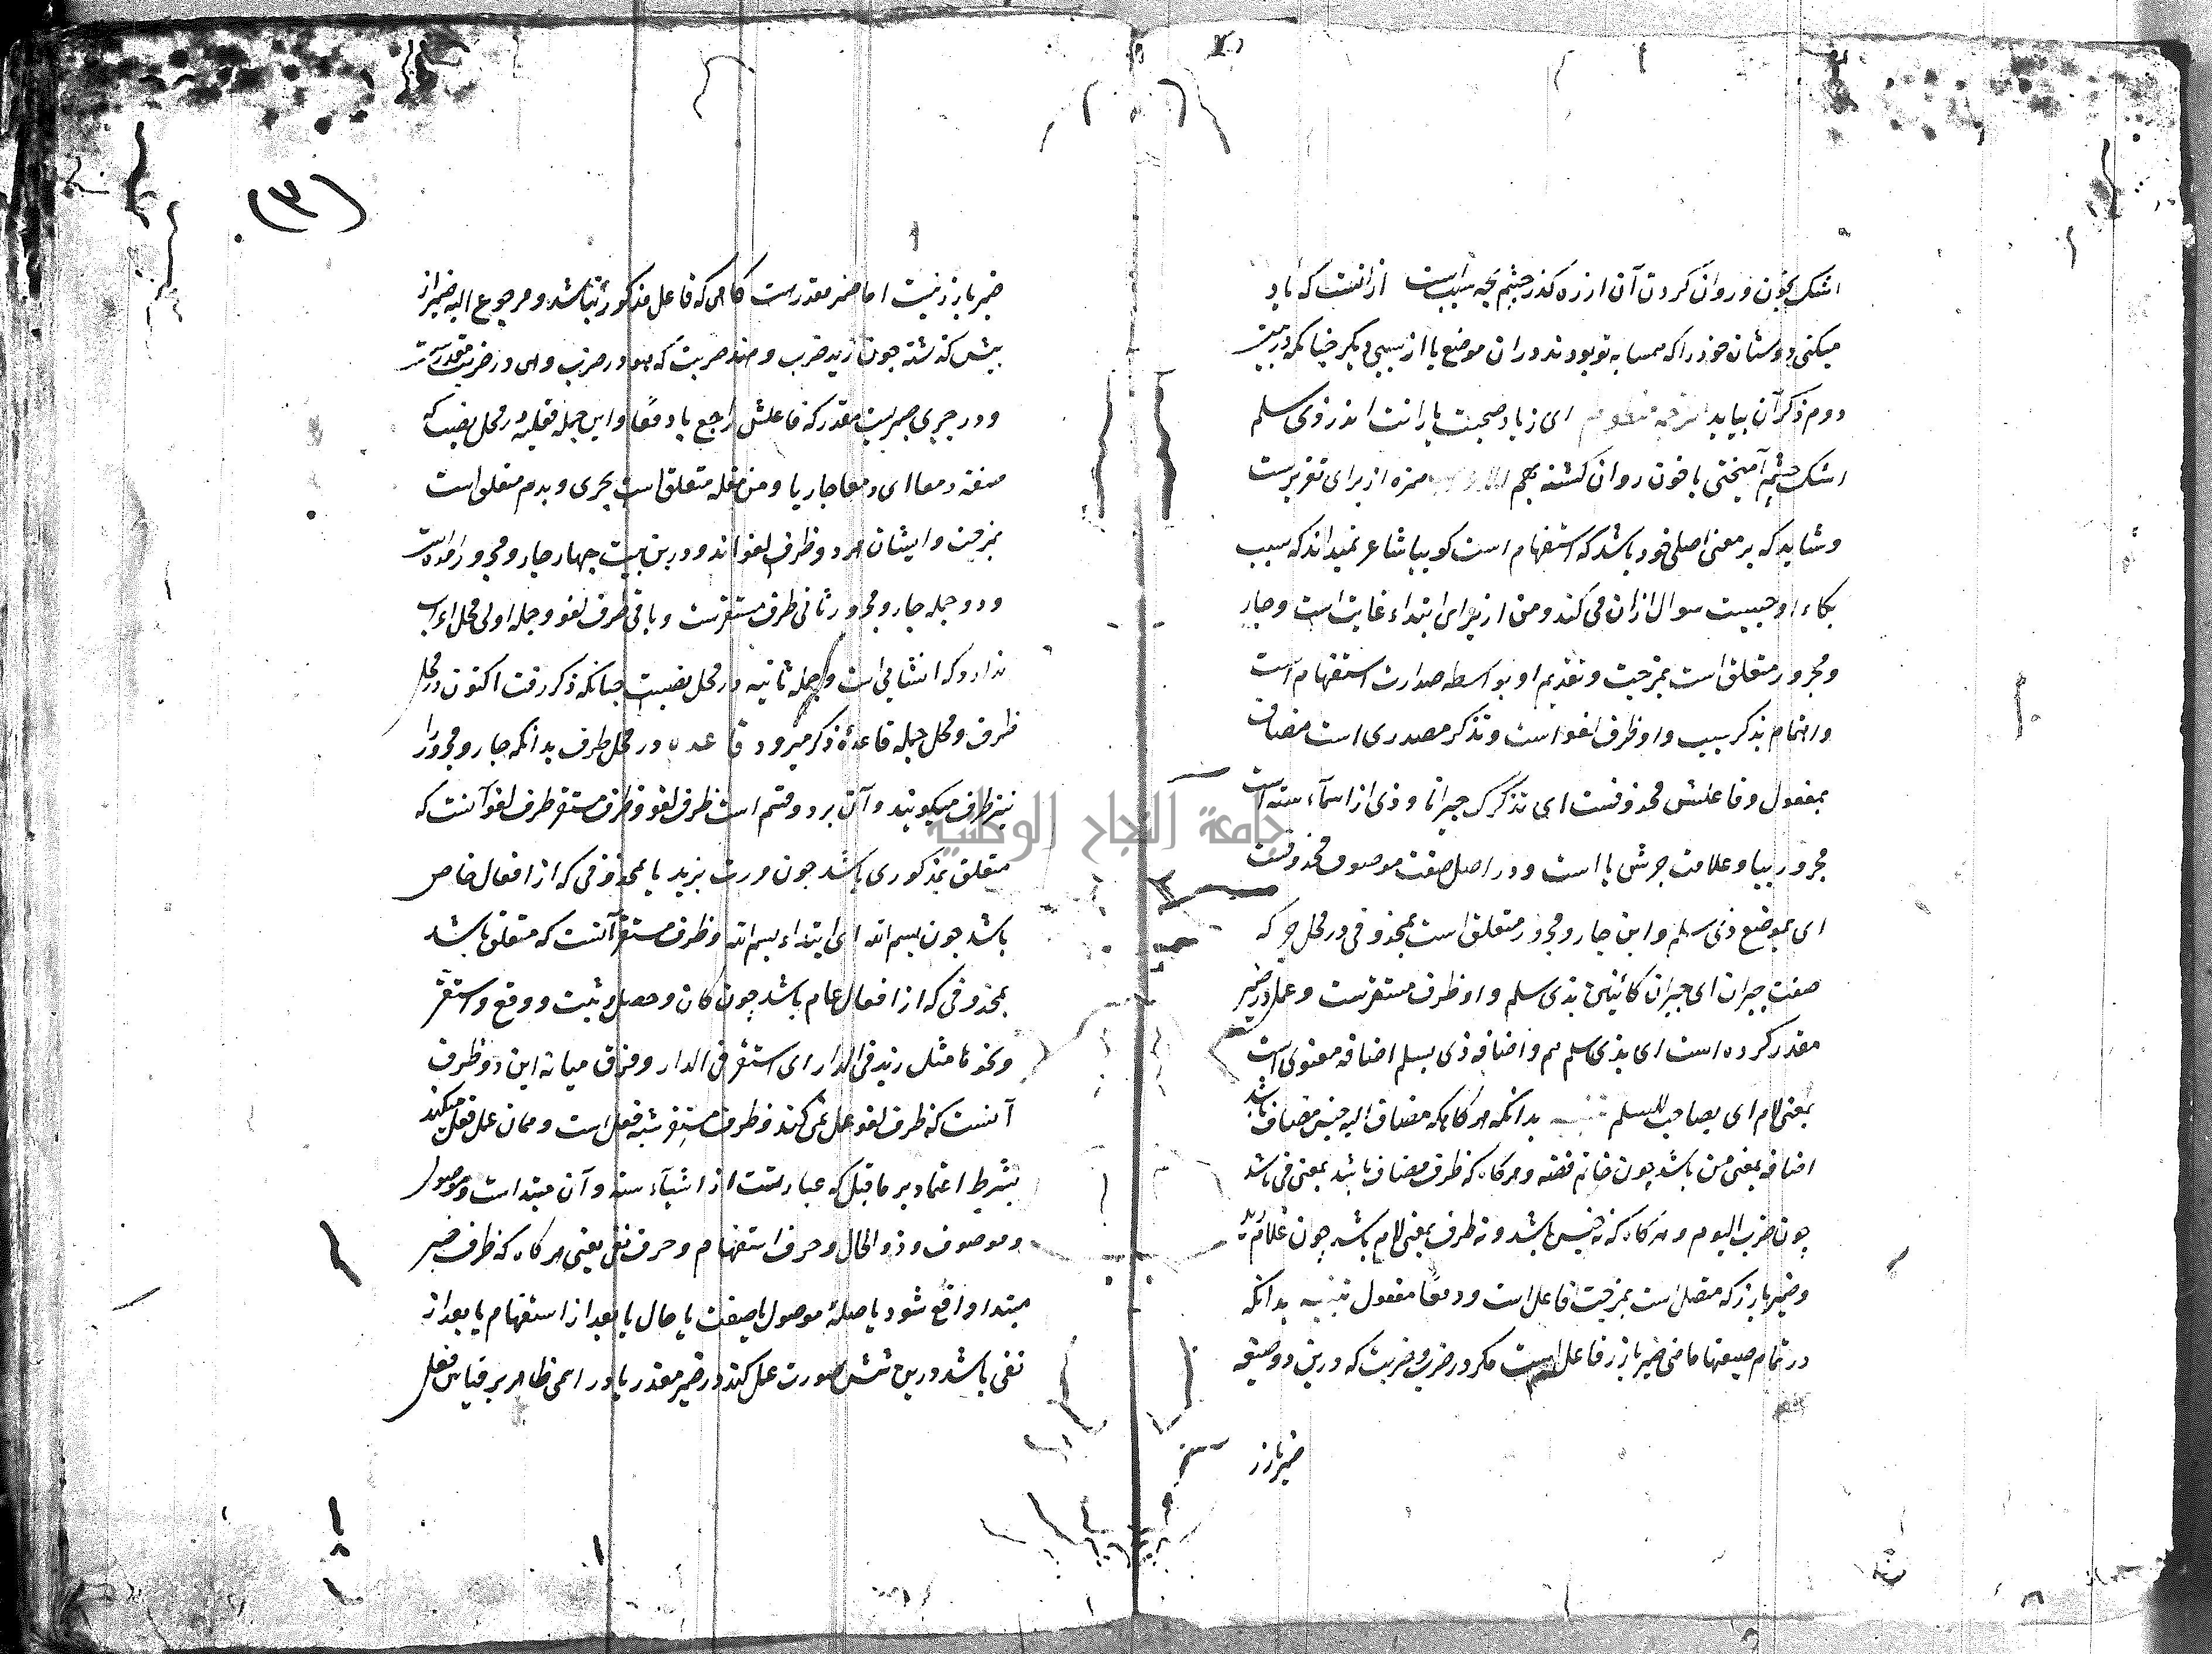 اشک بخون و روان کردن آن از ره کذر چشم بچه سببست ازانست که یاد
میکنی دوستان خود را که همسایه تو بودند دران موضع یا از سببی دیکر چنانکه در بیت
دوم ذکر آن بیاید ترجمه منظوم ای ز یاد صحبت یارانت اندر ذی سلم
اشک چشم آمیختی با خون روان کشته بهم همزه از برای تقریرست
و شاید که بر معنی اصلی خود باشد که استفهام است کوییا شاعر نمیداند که سبب
بکاء او چیست سوال ازان می کند و من از برای ابتداء غایت است و جار
و مجرور متعلق است بمزجت و تقدیم او بواسطه صدارت استفهام است
و اهتمام بذکر سبب و او ظرف لغو است و تذکر مصدری است مضاف
بمفعول و فاعلش محذوفست ای تذکرک جیرانا و ذی از اسماء سته است
مجرور بیا و علامت جرش یا است و در اصل صفت موصوف محذوفست
ای بموضع ذی سلم و این جار و مجرور متعلق است بمحذوفی در محل جر که
صفت جیران ای جیران کائنین بذی سلم و او ظرف مستقرست و عمل در ضمیر
مقدر کرده است ای بذی سلم هم و اضافه ذی بسلم اضافه معنوی است
بمعنی لام ای بصاحب للسلم تنبیه بدانکه هر کاه که مضاف الیه جنس مضاف باشد
اضافه بمعنی من باشد چون خاتم فضه و هرکاه که ظرف مضاف باشد بمعنی فی باشد
چون ضرب الیوم و هرکاه که نه جنس باشد و نه ظرف بمعنی لام باشد چون غلام زید
و ضمیر بارز که متصل است بمزجت فاعل است و دمعا مفعول تنبیه بدانکه
در تمام صیغهاء ماضی ضمیر بارز فاعل است مکر در ضرب و ضربت که درین دو صیغه
ضمیر بارز
(٣)
ضمیر بارز نیست اما ضمیر مقدرست کاهی که فاعل مذکور نباشد و مرجوع الیه ضمیر از
پیش کذشته چون زید ضرب و هند ضربت که هو در ضرب و هی در ضربت مقدرست
و در جری ضمیریست مقدر که فاعلش راجع با دمعا و این جمله فعلیه در محل نصبست که
صفة دمعا ای دمعا جاریا و من مقلة متعلق است بجری و بدم متعلق است
بمزجت و ایشان هر دو ظرف لغواند و درین بیت چهار جار و مجرور آمده است
و دو جمله جار و مجرور ثانی ظرف مستقرست و باقی ظرف لغو و جمله اولی محل اعراب
ندارد که انشائی است و جمله ثانیه در محل نصبست چنانکه ذکر رفت اکنون در محل
ظرف و محل جمله قاعدۀ ذکر میرود قاعده در محل ظرف بدانکه جار و مجرور را
نیز ظرف میکویند و آن بر دو قسم است ظرف لغو و ظرف مستقر ظرف لغو آنست که
متعلق بمذکوری باشد چون مررت بزید یا بمحذوفی که از افعال خاص
باشد چون بسم الله ای ابتداء بسم الله و ظرف مستقر آنست که متعلق باشد
بمحذوفی که از افعال عام باشد چون کان و حصل و ثبت و وقع و استقر
و نحوها مثل زید فی الدار ای استقر فی الدار و فرق میانه این دو ظرف
آنست که ظرف لغو عمل نمی کند و ظرف مستقر شبه فعل است و همان عمل فعل میکند
بشرط اعتماد بر ماقبل که عبارتست از اشیاء سته و آن مبتداست و موصول
و موصوف و ذو الحال و حرف استفهام و حرف نفی یعنی هر کاه که ظرف خبر
مبتدا واقع شود یا صلۀ موصول یا صفت یا حال یا بعد از استفهام یا بعد از
نفی باشد درین شش صورت عمل کند در ضمیر مقدر یا در اسمی ظاهر بر قیاس فعل
جامعة النجاح الوطنية